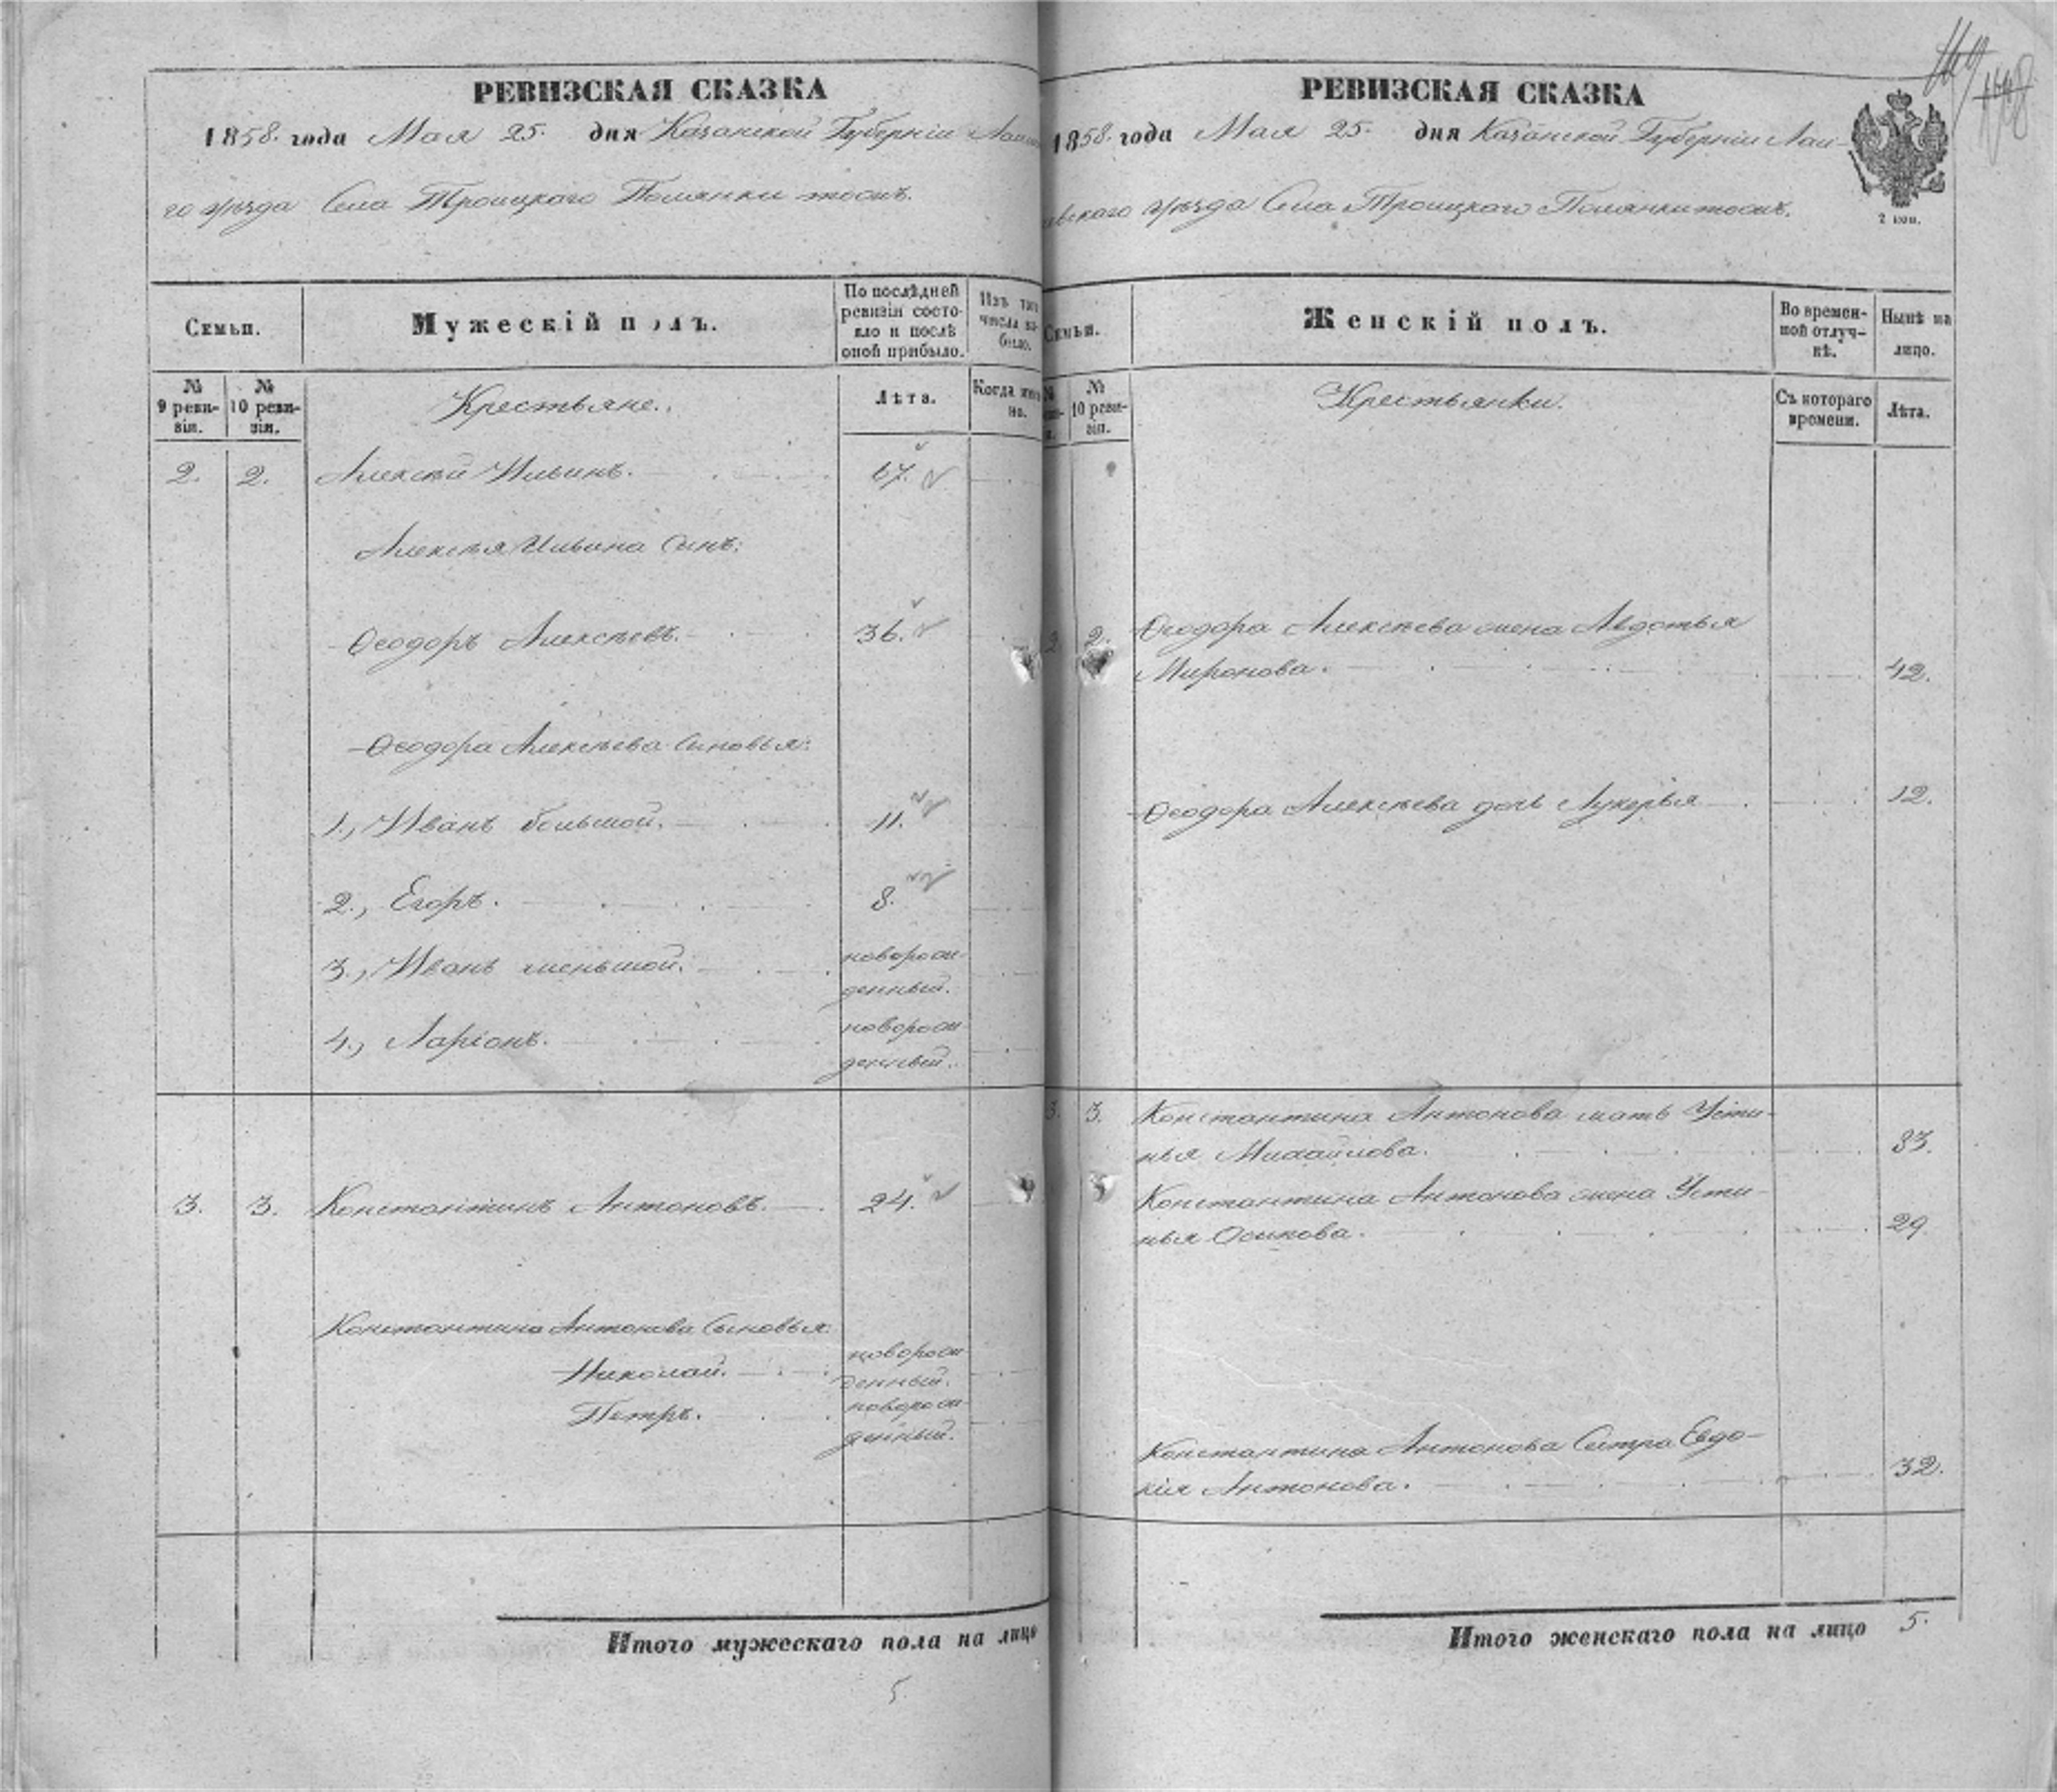 РЕВИЗСКАЯ СКАЗКА
1858. года Мая 25. дня Казанской Губерніи
го уѣзда Села Троицкого Полянки тожъ.
Семьи.
Мужескій полъ.
По послѣдней ревизіи состо-
яло и послѣ
оной прибыло.
Изъ того
числа вы-
было.
№
9 реви-
зіи.
№
10 реви-
зіи.
Крестьяне.
Лѣта.
Когда имен-
но.
2. 2. Алексѣй Ильинъ. 67.
Алексѣя Ильина сынъ:
Ѳеодоръ Алексѣевъ. 36.
Ѳеодора Алексѣева сыновья:
1., Иванъ большой. 11.
2., Егоръ. 8.
3., Иванъ меньшой. новорож-
денный.
4., Ларіонъ. новорож-
денный.
3. 3. Константинъ Антоновъ. 24.
Константина Антонова сыновья
Николай. новорож-
денный.
Петръ. новорож-
денный.
Итого мужескаго пола на лицо
5.
РЕВИЗСКАЯ СКАЗКА
1858. года Мая 25. дня Казанской Губерніи Лаи-
шевскаго уѣзда Села Троицкого Полянки тожъ.
2 коп.
Семьи.
Женскій полъ.
Во времен-
ной отлуч-
кѣ.
Нынѣ на
лицо.
№
10 реви-
зіи.
Крестьянки.
Съ котораго
времени.
Лѣта.
2. 2. Ѳеодора Алексѣева жена Авдотья
Миронова. 42.
Ѳеодора Алексѣева дочь Лукерья 12.
3. 3. Константина Антонова мать Усти-
нья Михайлова. 83.
Константина Антонова жена Усти-
нья Осипова. 29.
Константина Антонова сестра Евдо-
кія Антонова. 32.
Итого женскаго пола на лицо 5.